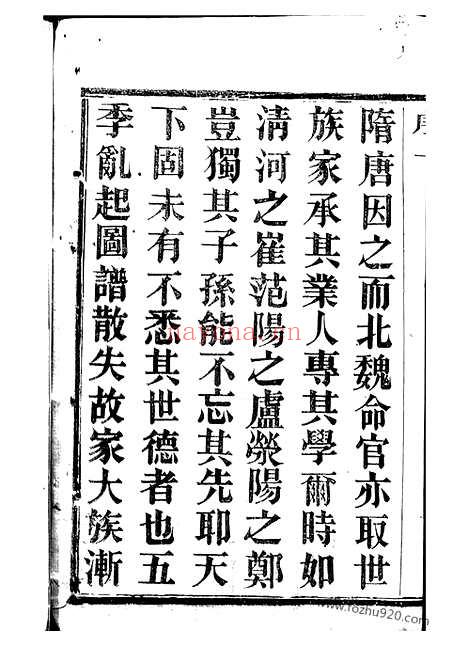 隋唐因之而北魏命官亦取世
族家承其業人專其學爾時如
清河之崔范陽之盧滎陽之鄭
豈獨其子孫能不忘其先耶天
下固未有不悉其世德者也五
季亂起圖譜散失故家大族漸
www.fozhu920.com